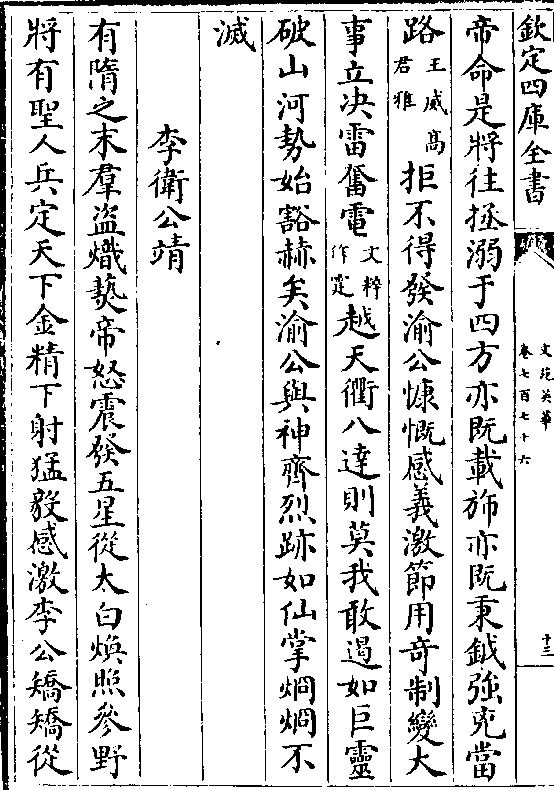 欽定四庫全書
文苑英華
卷七百七十六
十三
帝命是將往拯溺于四方亦既載斾亦既秉鉞強兇當
路王威高君雅拒不得發渝公慷慨感義激節用奇制變大
事立决雷奮電文粹作霆越天衢八達則莫我敢遏如巨靈
破山河勢始豁赫矣渝公與神齊烈跡如仙掌烱烱不
滅
李衛公靖
有隋之末羣盜熾爇帝怒震發五星從太白煥照參野
將有聖人兵定天下金精下射猛毅感激李公矯矯從